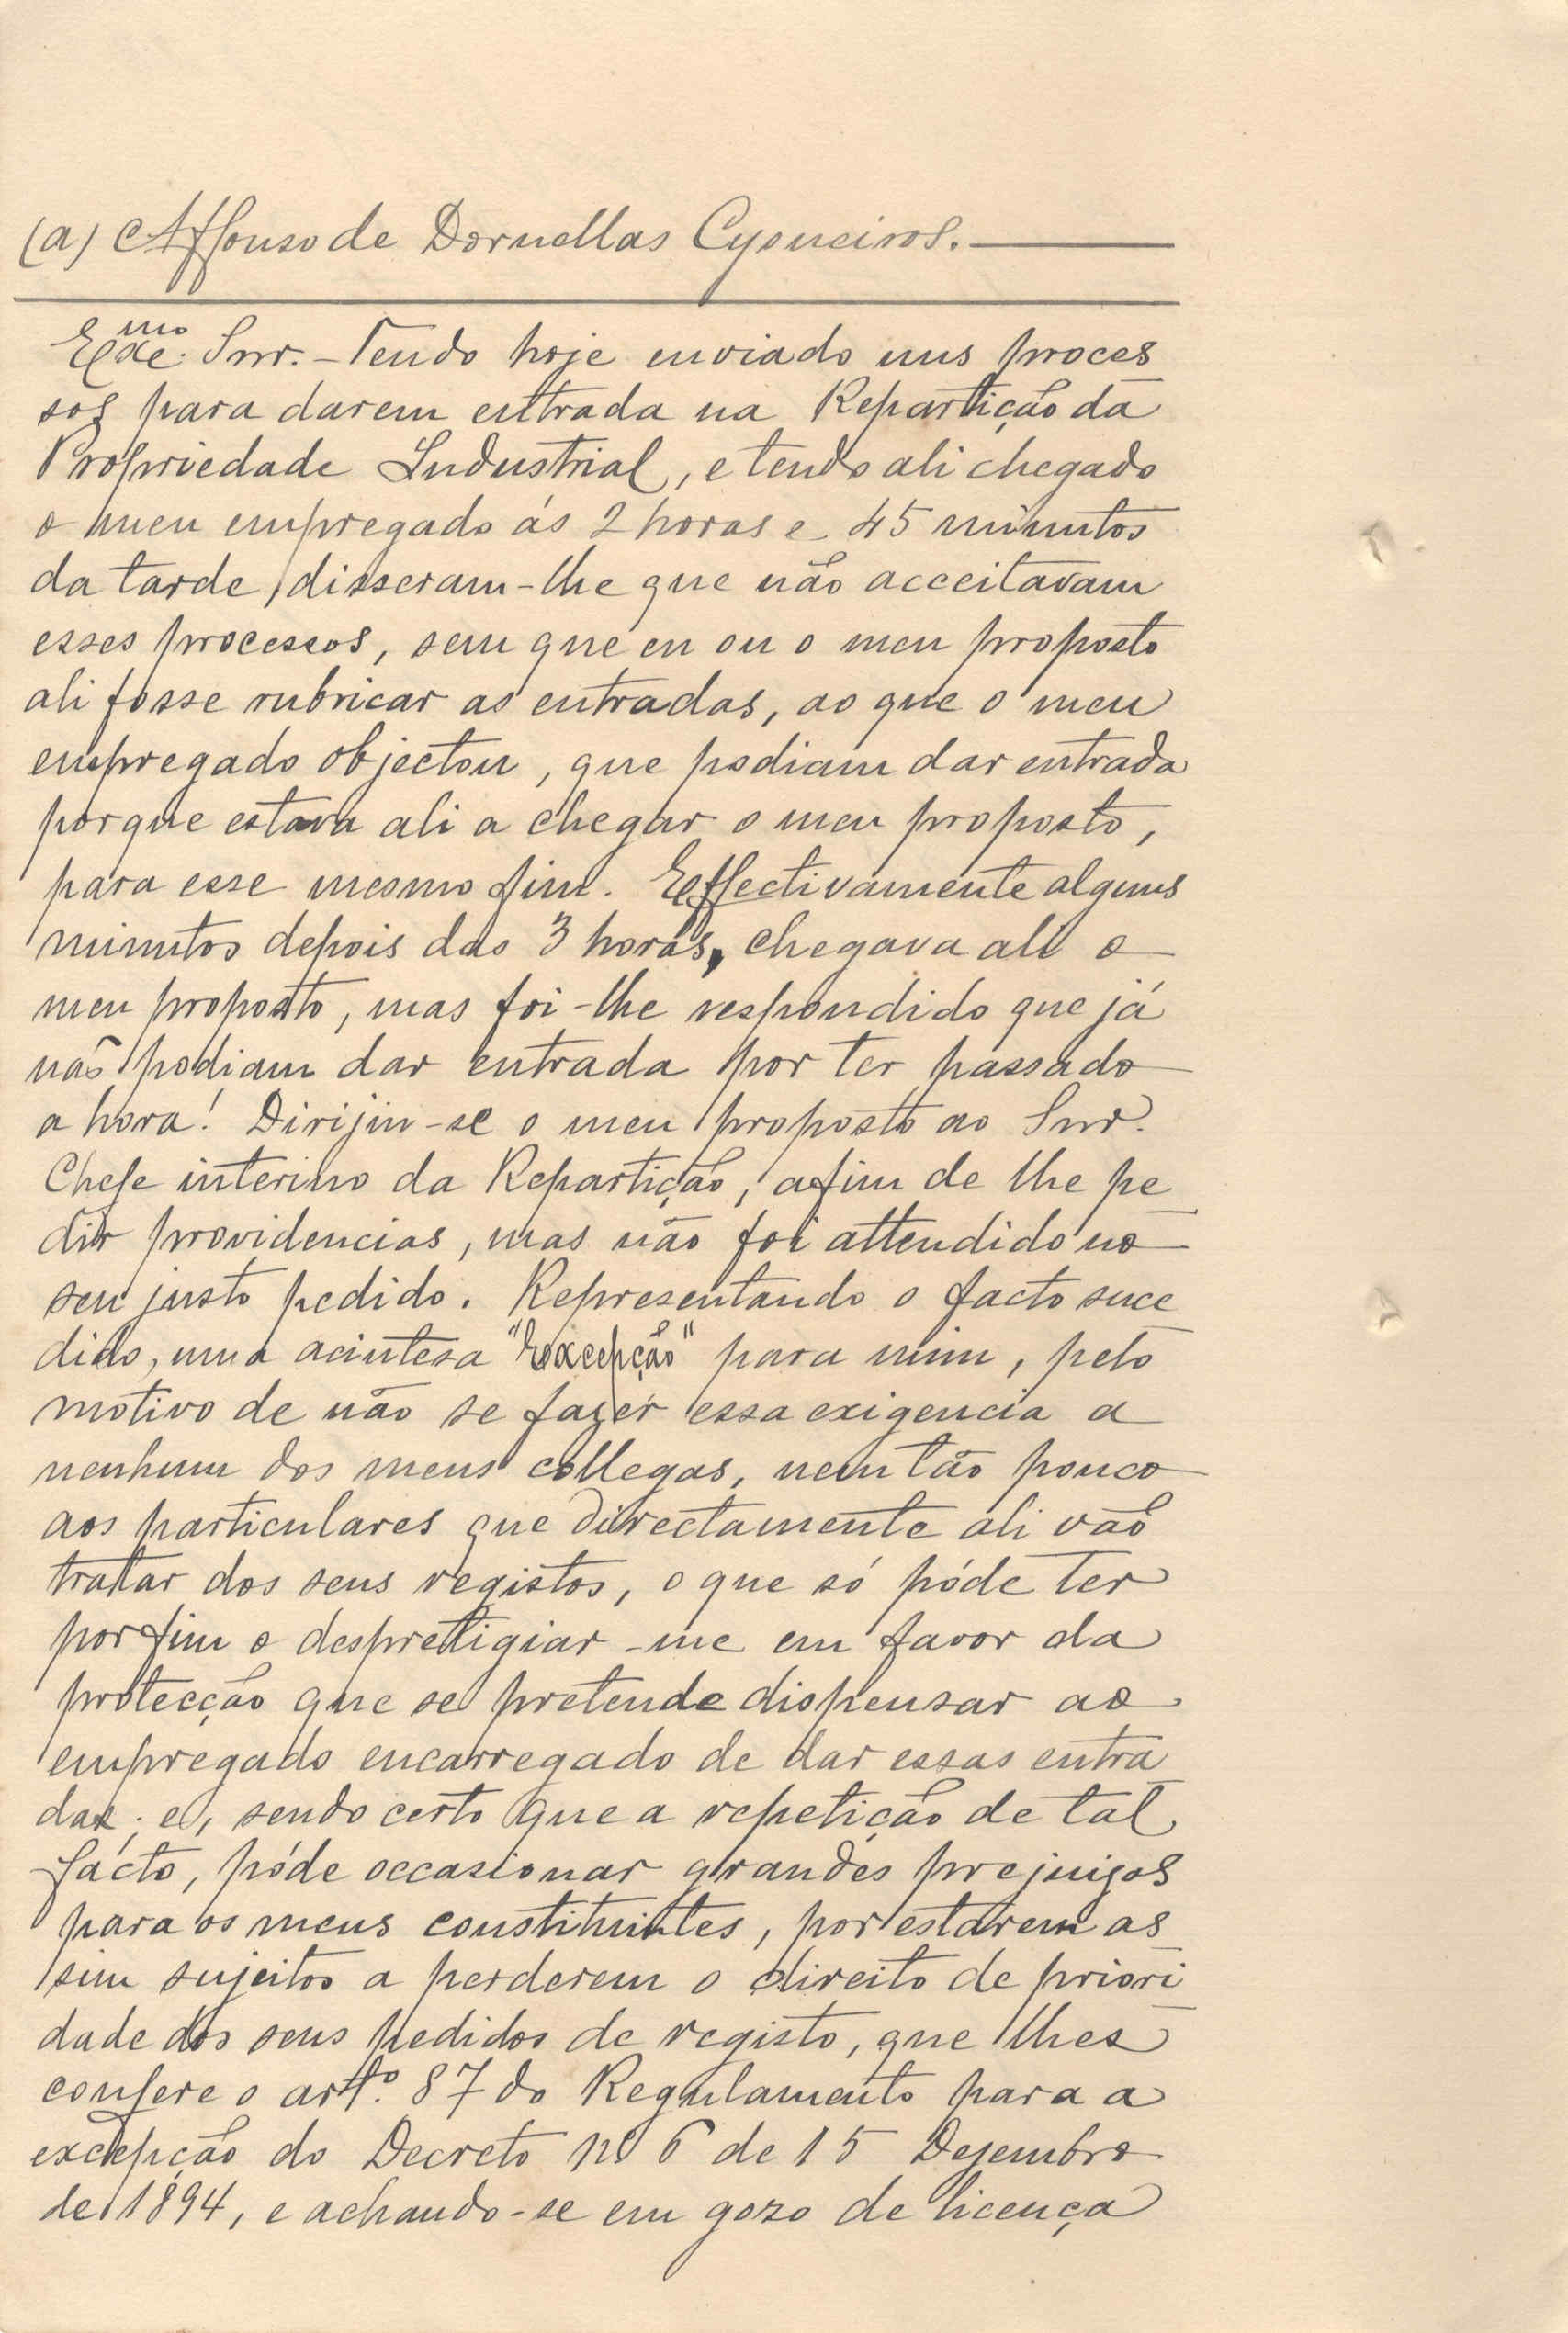 (a) Affonso de Dornellas Cysneiros.
Exmo. Snr. – Tendo hoje enviado uns proces
sos para darem entrada na Repartição da
Propriedade Industrial, e tendo ali chegado
o meu empregado ás 2 horas e 45 minutos
da tarde, disseram-lhe que não acceitavam
esses processos, sem que eu ou o meu proposto
ali fosse rubricar as entradas, ao que o meu
empregado objectou, que podiam dar entrada
porque estava ali a chegar o meu proposto,
para esse mesmo fim. Effectivamente alguns
minutos depois das 3 horas, chegava ali o
meu proposto, mas foi-lhe respondido que já
não podiam dar entrada por ter passado
a hora! Dirijiu-se o meu proposto ao Snr.
Chefe interino da Repartição, afim de lhe pe
dir providencias, mas não foi attendido no
seu justo pedido. Representando o facto suce
dido, uma acintosa "Excepção" para mim, pelo
motivo de não se fazer essa exigencia a
nenhum dos meus collegas, nem tão pouco
aos particulares que directamente ali vão
tratar dos seus registos, o que só póde ter
por fim o despretigiar-me em favor da
protecção que se pretende dispensar ao
empregado encarregado de dar essas entra
das; e, sendo certo que a repetição de tal
fácto, póde occasionar grandes prejuizos
para os meus constituintes, por estarem as
sim sujeitos a perderem o direito de priori
dade dos seus pedidos de registo, que lhes
confere o artº. 87 do Regulamento para a
excepção do Decreto nº 6 de 15 Dezembro
de 1894, e achando-se em gozo de licença